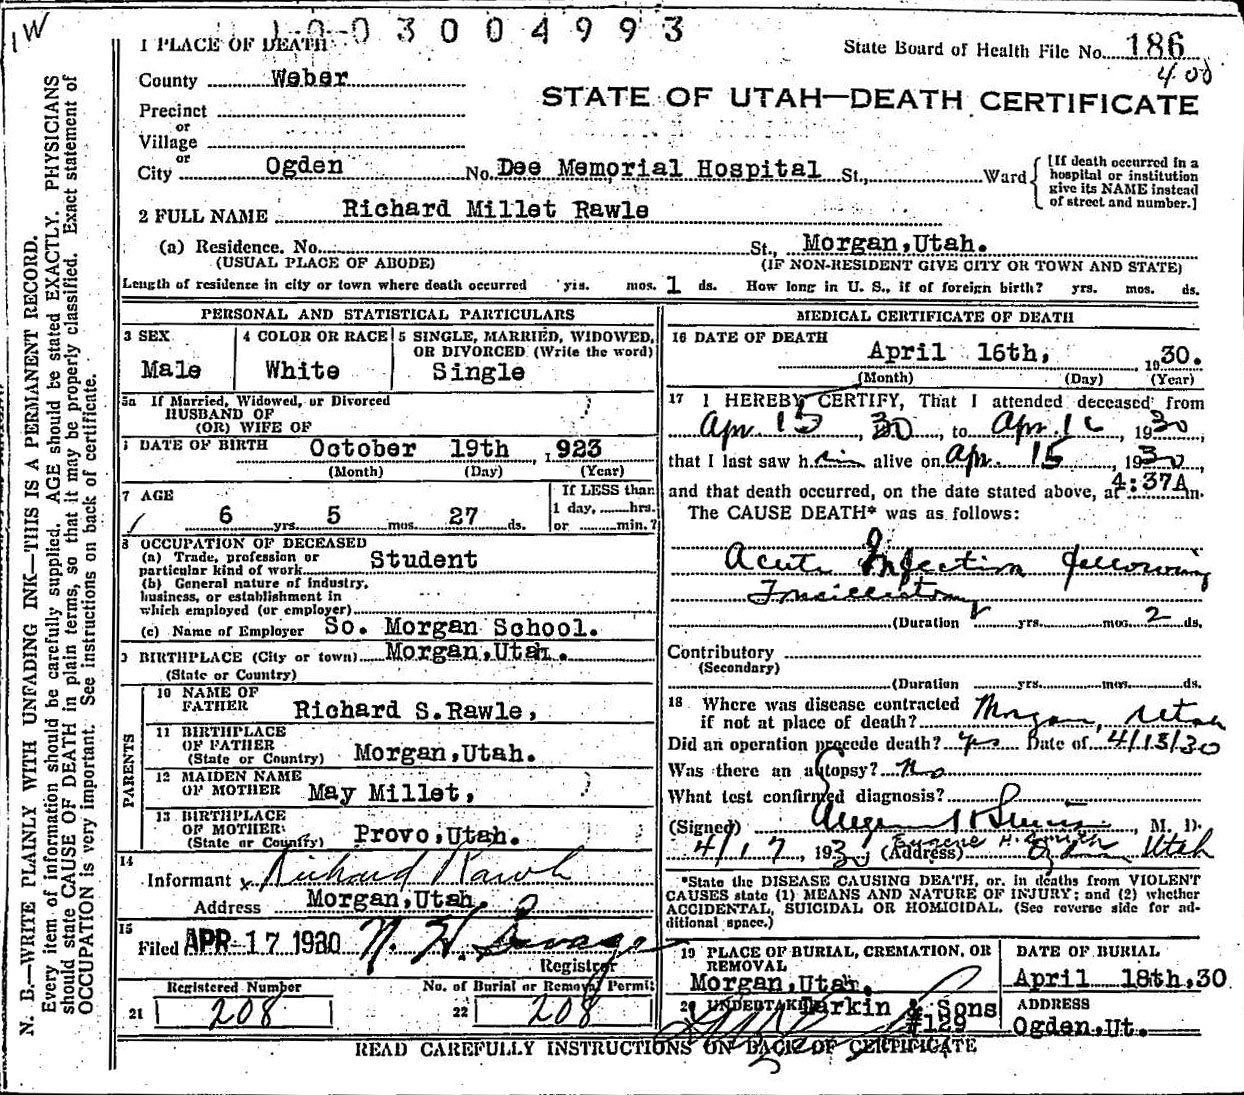 1W
1003004993
1 PLACE OF DEATH
State Board of Health File No. 186
400
County Weber
STATE OF UTAH—DEATH CERTIFICATE
Precinct
or
Village
or
City Ogden No. Dee Memorial Hospital St., Ward
[If death occurred in a
hospital or institution
give its NAME instead
of street and number.]
2 FULL NAME Richard Millet Rawle
(a) Residence. No. St., Morgan,Utah.
(USUAL PLACE OF ABODE) (IF NON-RESIDENT GIVE CITY OR TOWN AND STATE)
Length of residence in city or town where death occurred yrs. mos. 1 ds. How long in U. S., if of foreign birth? yrs. mos. ds.
PERSONAL AND STATISTICAL PARTICULARS
3 SEX
Male
4 COLOR OR RACE
White
5 SINGLE, MARRIED, WIDOWED,
OR DIVORCED (Write the word)
Single
5a If Married, Widowed, or Divorced
HUSBAND OF
(OR) WIFE OF
DATE OF BIRTH October 19th, 1923
(Month) (Day) (Year)
7 AGE
6 yrs. 5 mos. 27 ds.
If LESS than
1 day, hrs.
or min.?
8 OCCUPATION OF DECEASED
(a) Trade, profession or
particular kind of work Student
(b) General nature of industry,
business, or establishment in
which employed (or employer)
(c) Name of Employer So. Morgan School.
9 BIRTHPLACE (City or town) Morgan,Utah.
(State or Country)
PARENTS
10 NAME OF
FATHER Richard S.Rawle,
11 BIRTHPLACE
OF FATHER
(State or Country) Morgan,Utah.
12 MAIDEN NAME
OF MOTHER May Millet,
13 BIRTHPLACE
OF MOTHER
(State or Country) Provo,Utah.
14
Informant x Richard Rawle
Address Morgan,Utah.
15
Filed APR 17 1930 N. H. Savage
Registrar
Registered Number
21 208
No. of Burial or Removal Permit
22 208
MEDICAL CERTIFICATE OF DEATH
16 DATE OF DEATH
April 16th, 1930.
(Month) (Day) (Year)
17 I HEREBY CERTIFY, That I attended deceased from
Apr. 15, 30, to Apr. 16, 1930,
that I last saw him alive on Apr. 15, 1930,
and that death occurred, on the date stated above, at 4:37A m.
The CAUSE DEATH* was as follows:
Acute Infection following
Tonsillectomy
(Duration yrs. mos. 2 ds.
Contributory
(Secondary)
(Duration yrs. mos. ds.
18 Where was disease contracted
if not at place of death? Morgan, Utah
Did an operation precede death? yes Date of 4/13/30
Was there an autopsy? No
What test confirmed diagnosis?
(Signed) Eugene H Smith, M. D.
Eugene H. Smith
4/17, 1930 (Address) Ogden Utah
*State the DISEASE CAUSING DEATH, or, in deaths from VIOLENT
CAUSES state (1) MEANS AND NATURE OF INJURY; and (2) whether
ACCIDENTAL, SUICIDAL OR HOMICIDAL. (See reverse side for ad-
ditional space.)
19 PLACE OF BURIAL, CREMATION, OR
REMOVAL
Morgan,Utah.
DATE OF BURIAL
April 18th,30
20 UNDERTAKER Larkin & Sons
#129
ADDRESS
Ogden,Ut.
READ CAREFULLY INSTRUCTIONS ON BACK OF CERTIFICATE
N. B.—WRITE PLAINLY WITH UNFADING INK—THIS IS A PERMANENT RECORD.
Every item of information should be carefully supplied. AGE should be stated EXACTLY. PHYSICIANS
should state CAUSE OF DEATH in plain terms, so that it may be properly classified. Exact statement of
OCCUPATION is very important. See instructions on back of certificate.